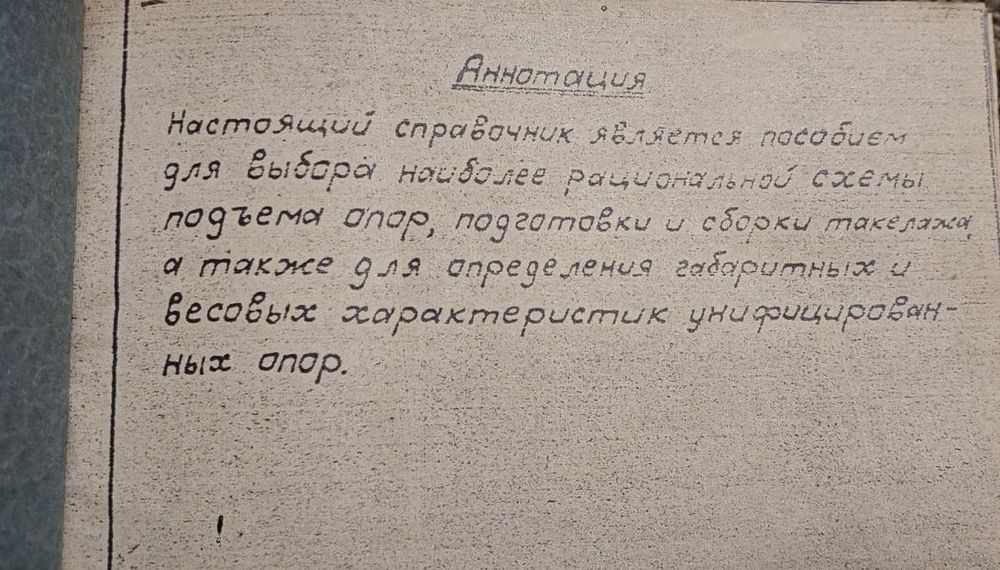 Аннотация
Настоящий справочник является пособием
для выбора наиболее рациональной схемы
подъема опор, подготовки и сборки такелажа,
а также для определения габаритных и
весовых характеристик унифицирован-
ных опор.